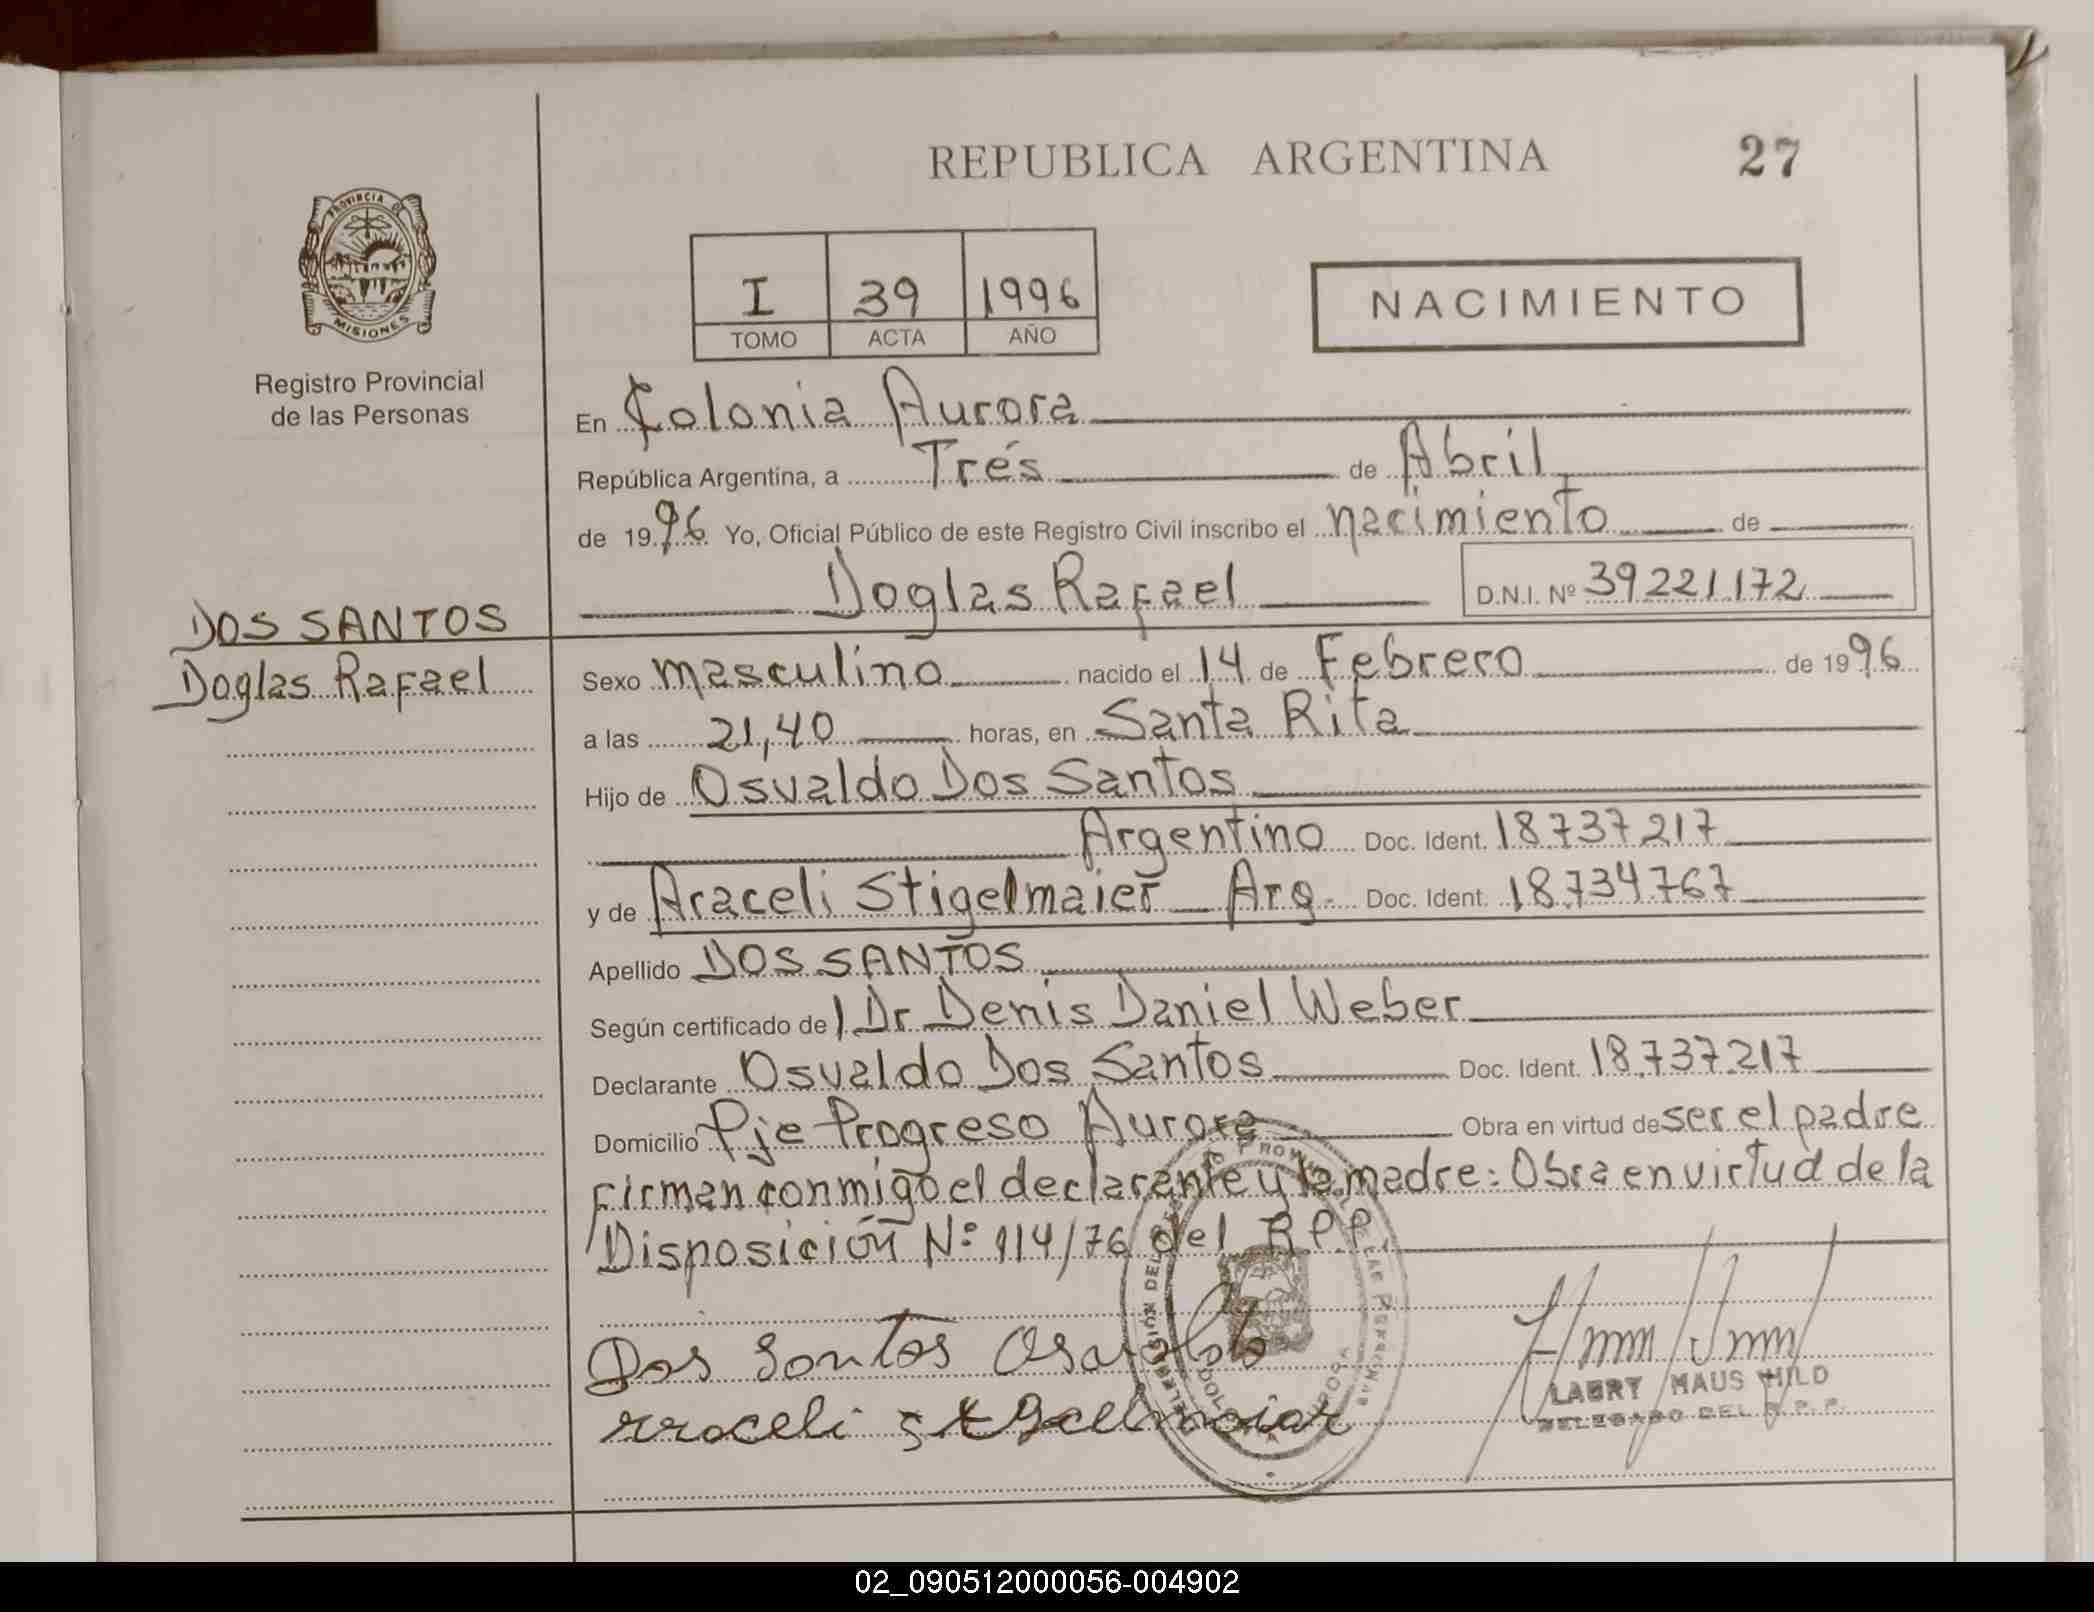 REPUBLICA ARGENTINA 27
PROVINCIA DE
MISIONES
Registro Provincial
de las Personas
I 39 1996
TOMO ACTA AÑO
NACIMIENTO
En Colonia Aurora
República Argentina, a Trés de Abril
de 1996 Yo, Oficial Público de este Registro Civil inscribo el nacimiento de
Doglas Rafael D.N.I. Nº 39221172
DOS SANTOS
Doglas Rafael
Sexo masculino nacido el 14 de Febrero de 1996
a las 21,40 horas, en Santa Rita
Hijo de Osvaldo Dos Santos
Argentino Doc. Ident. 18737217
y de Araceli Stigelmaier Arg. Doc. Ident. 18.734.767
Apellido DOS SANTOS
Según certificado de Dr Denis Daniel Weber
Declarante Osvaldo Dos Santos Doc. Ident. 18.737.217
Domicilio Pje Progreso Aurora Obra en virtud de ser el padre
Firman conmigo el declarante y la madre: Obra en virtud de la
Disposición Nº 114/76 del R.P.P.
Dos Santos Osvaldo
LABRY HAUS HILD
DELEGADO DEL R.P.P.
02_090512000056-004902